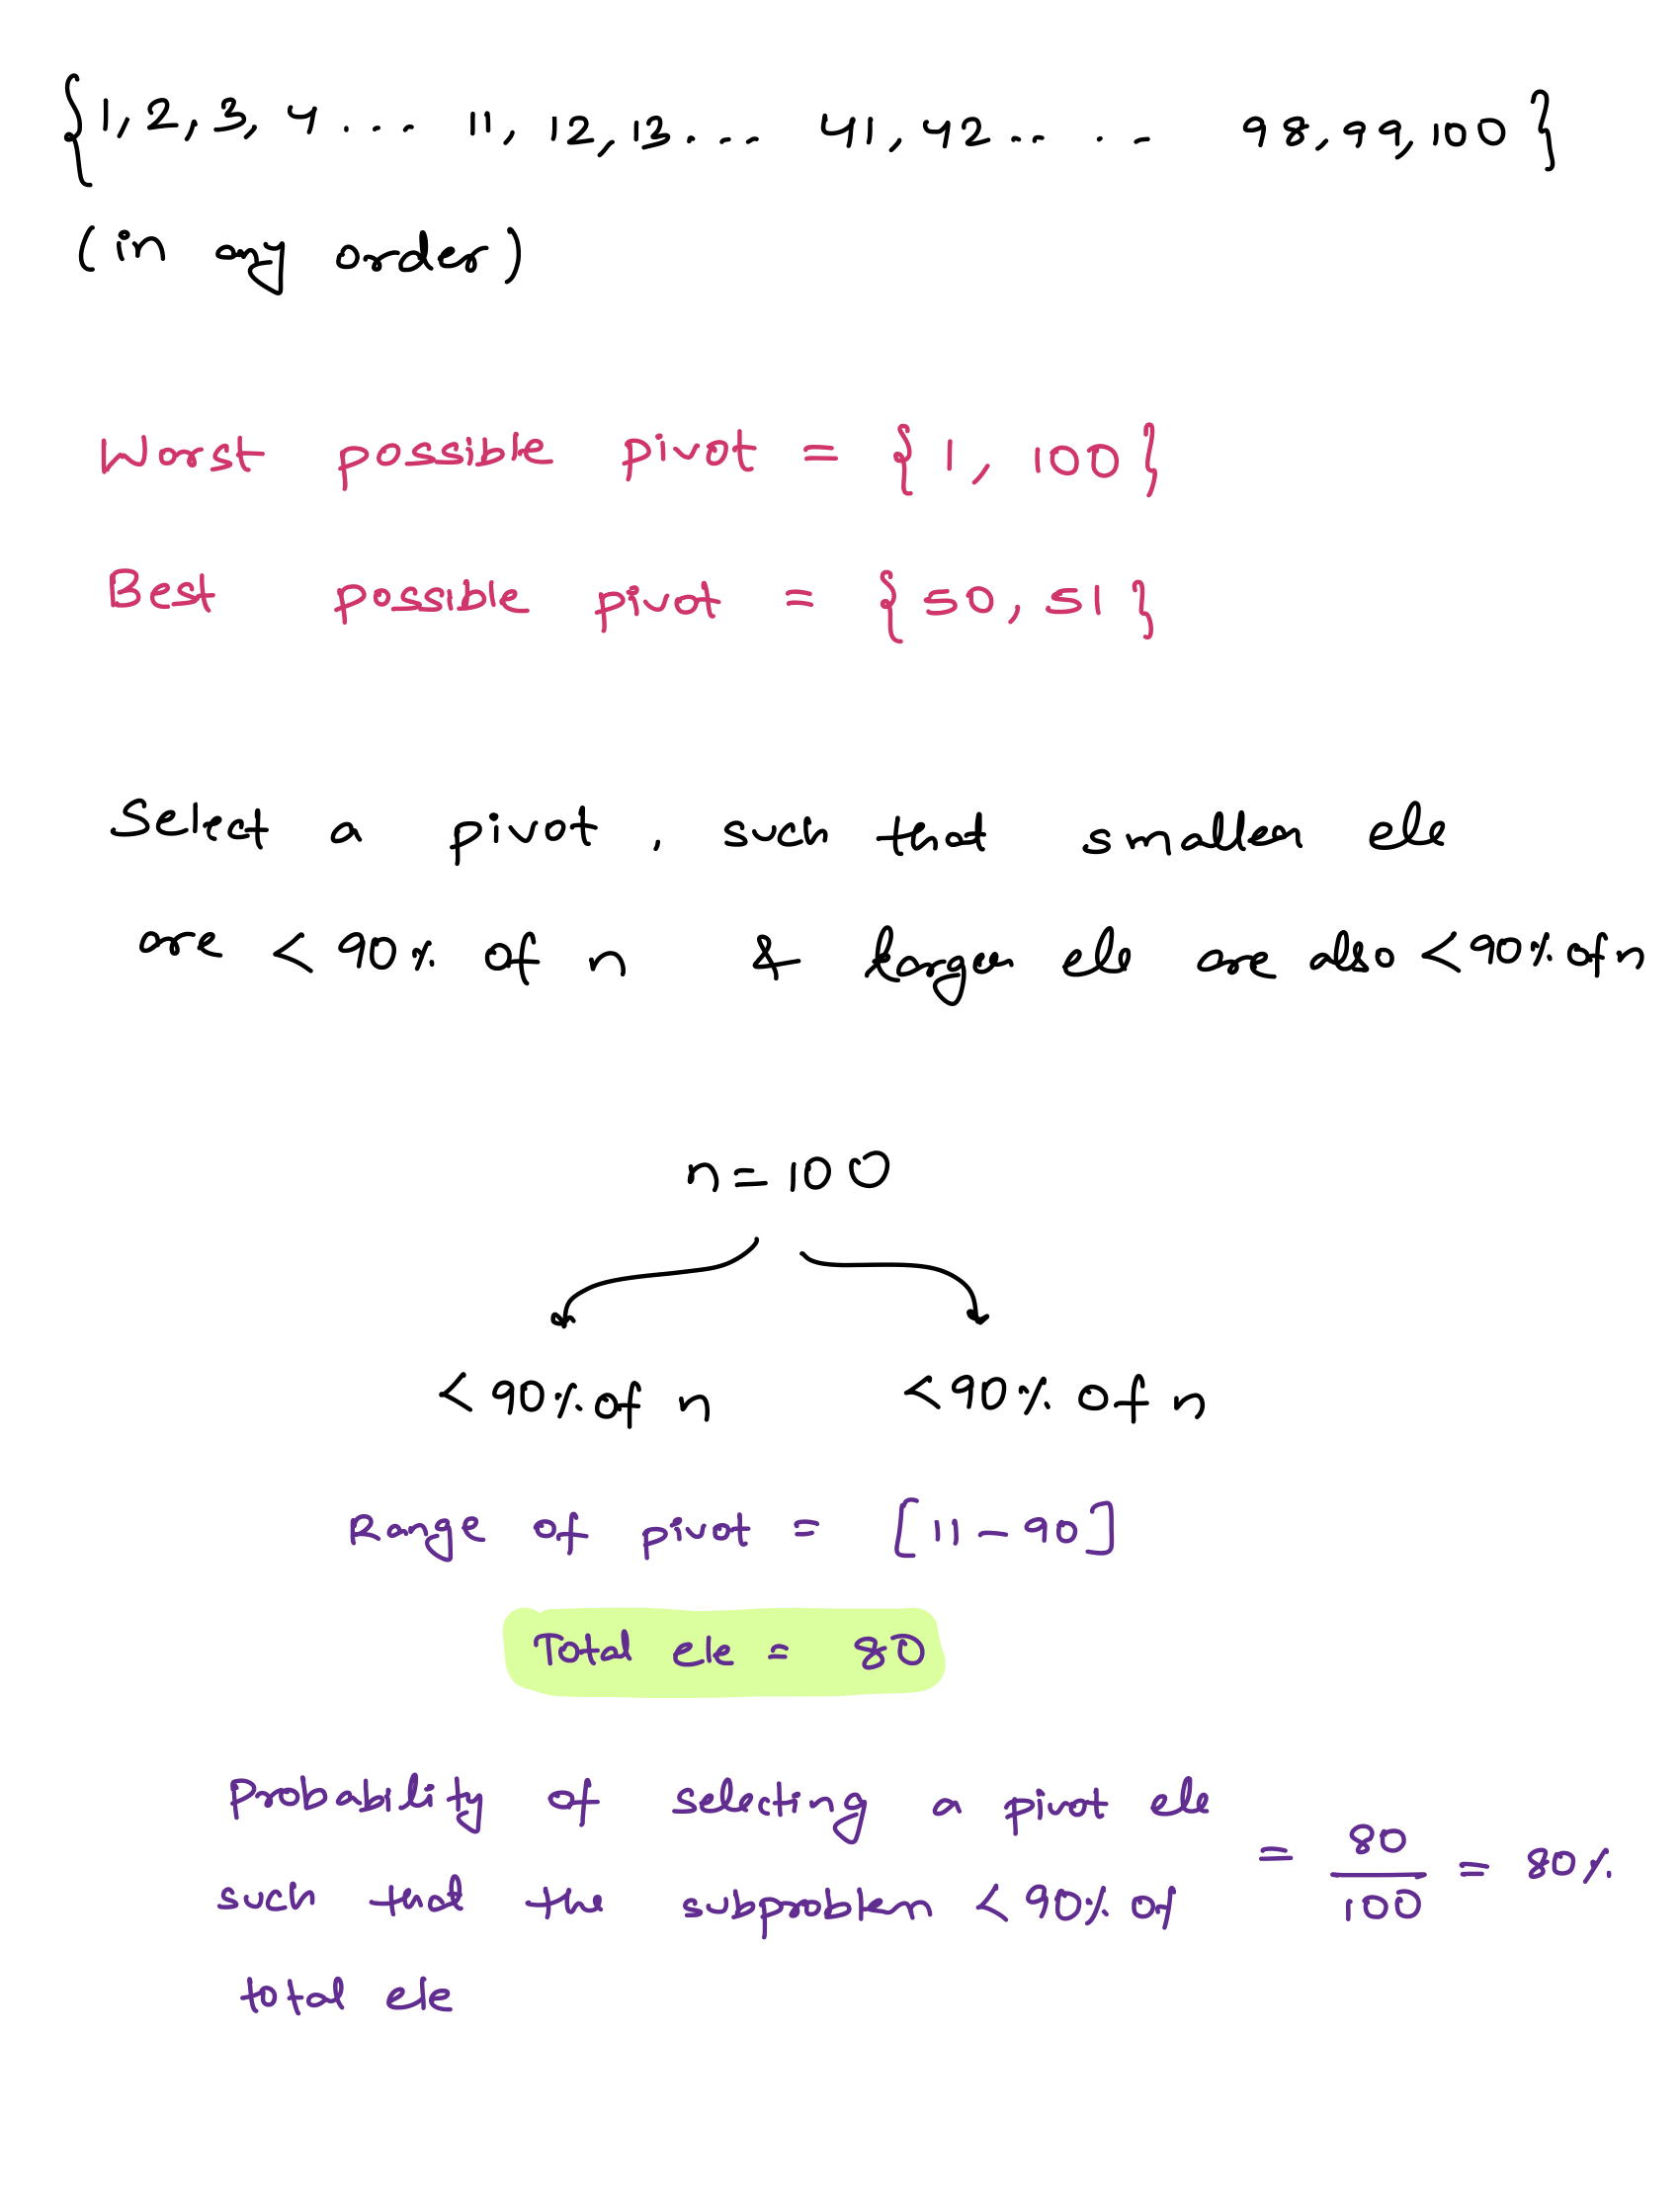 {1, 2, 3, 4 ... 11, 12, 13 ... 41, 42 .. . . 98, 99, 100}
(in any order)
Worst possible pivot = {1, 100}
Best possible pivot = {50, 51}
Select a pivot, such that smaller ele
are < 90% of n & larger ele are also < 90% of n
n = 100
< 90% of n < 90% of n
Range of pivot = [11 - 90]
Total ele = 80
Probability of selecting a pivot ele
such that the subproblem < 90% of = 80/100 = 80%
total ele